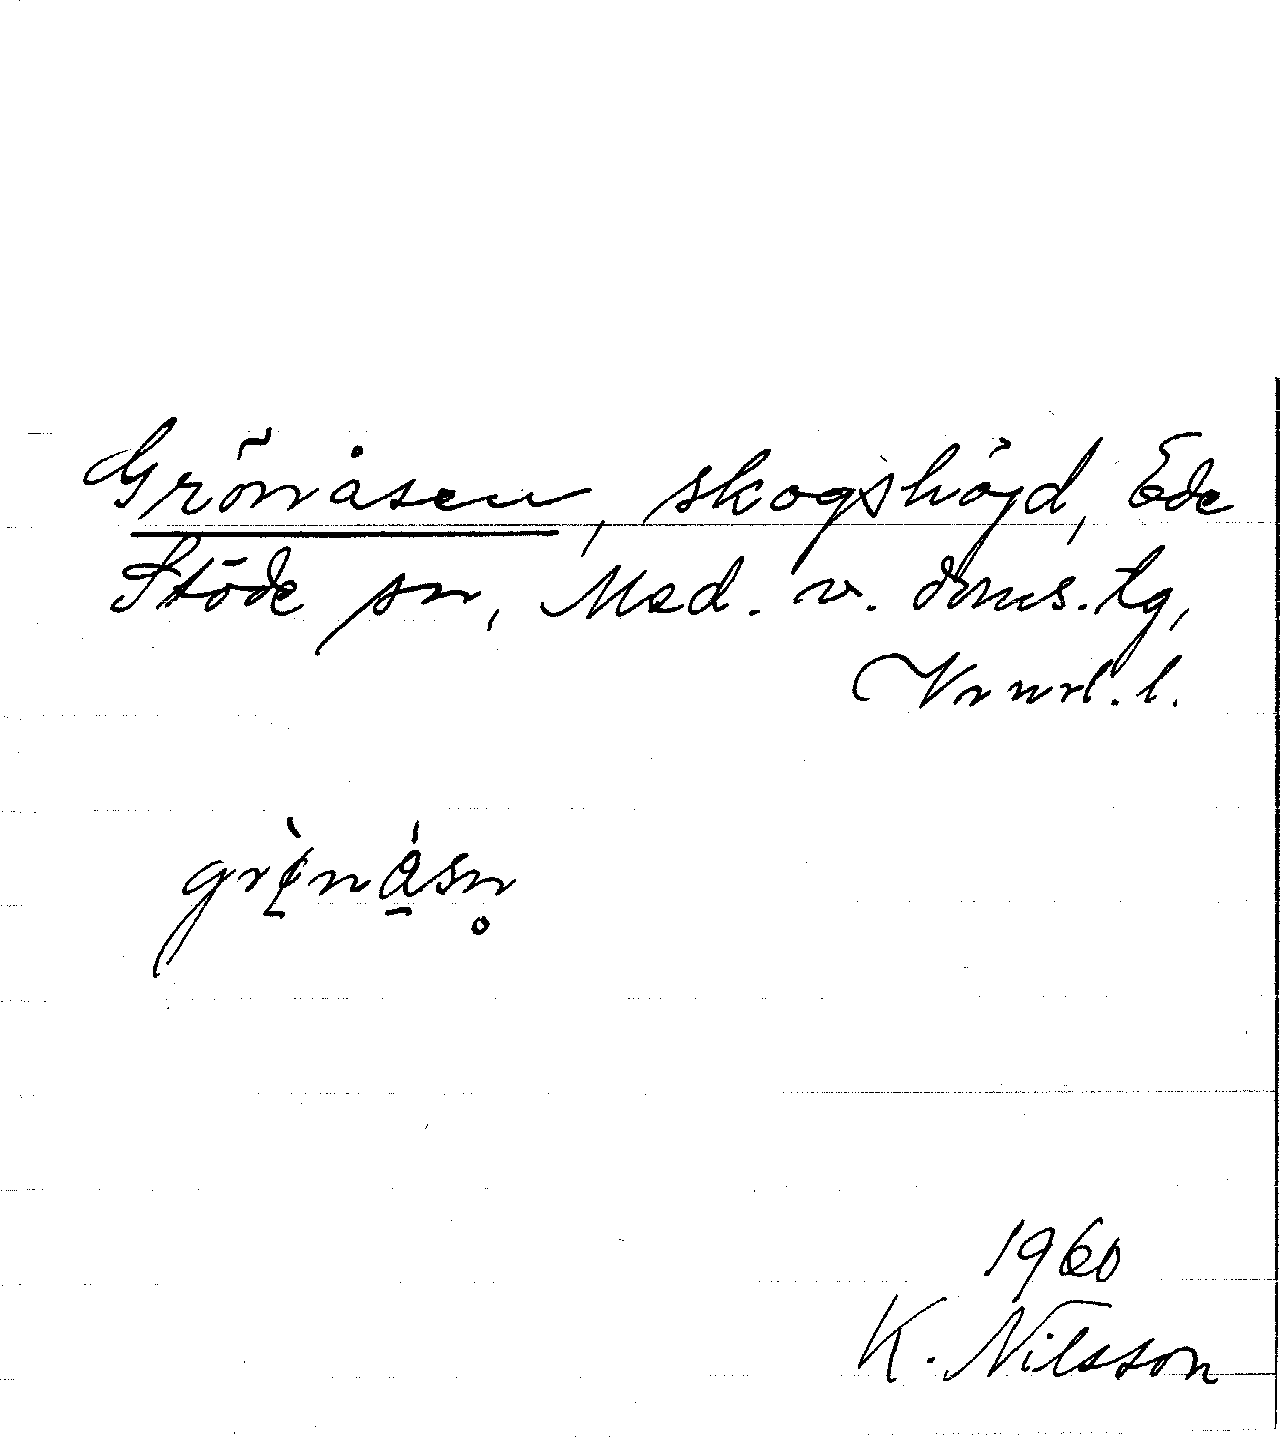 Grönåsen, skogshöjd, Ede
Stöde sn, Med. v. doms. tg,
Vrnrl. l.
grø̀nåsn̥
1960
K. Nilsson